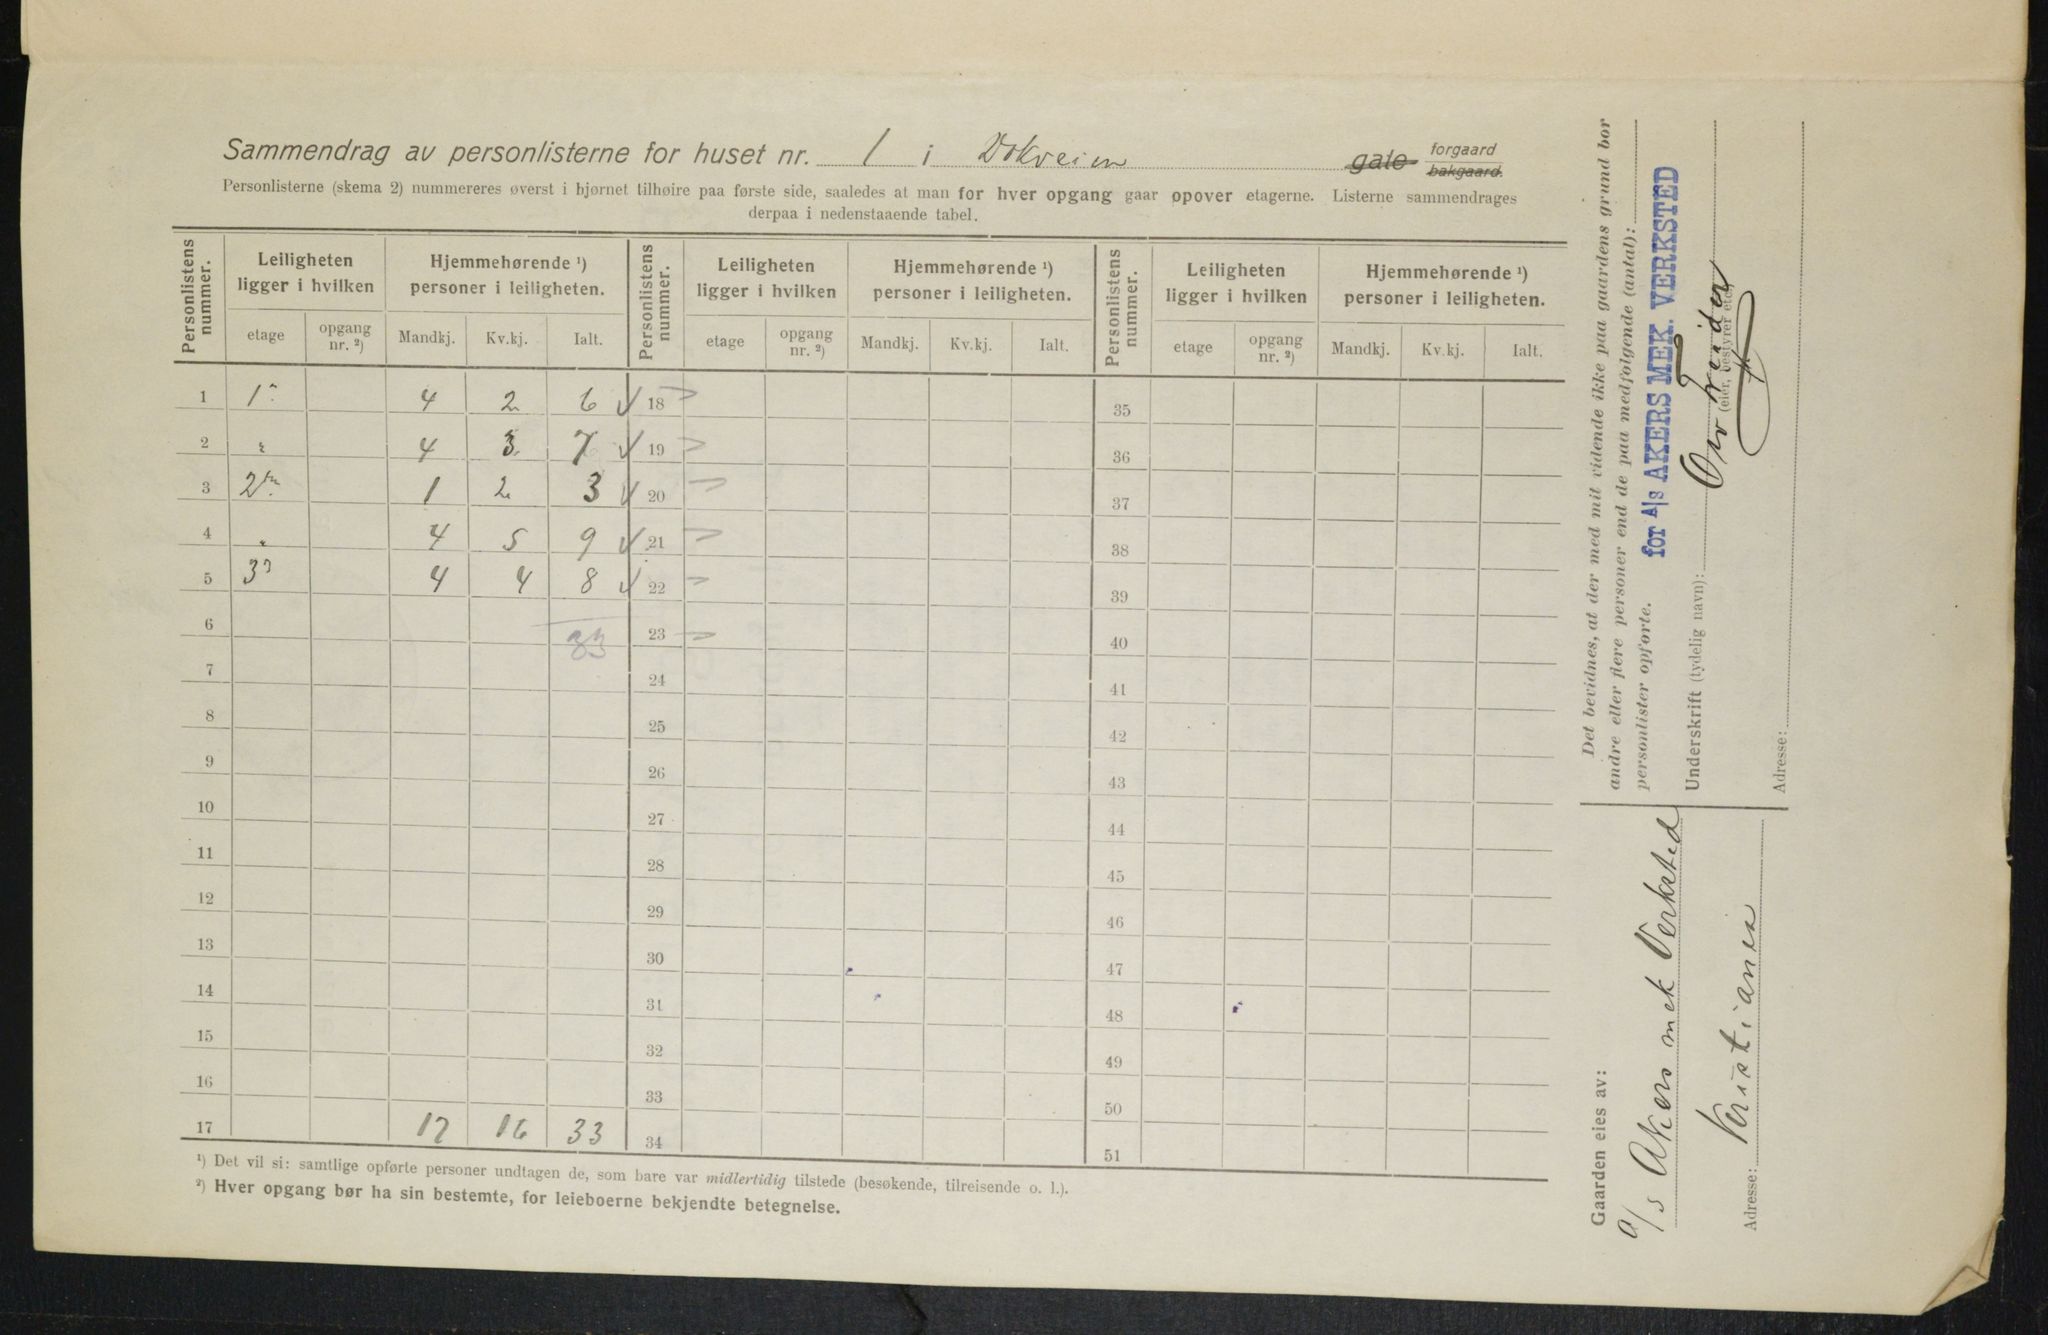 Sammendrag av personlisterne for huset nr. 1 i Dokveien gate forgaard bakgaard.
Personlisterne (skema 2) nummereres øverst i hjørnet tilhøire paa første side, saaledes at man for hver opgang gaar opover etagerne. Listerne sammendrages
derpaa i nedenstaaende tabel.
Personlistens nummer. Leiligheten ligger i hvilken Hjemmehørende ¹) personer i leiligheten. Personlistens nummer. Leiligheten ligger i hvilken Hjemmehørende ¹) personer i leiligheten. Personlistens nummer. Leiligheten ligger i hvilken Hjemmehørende ¹) personer i leiligheten.
etage opgang nr. ²) Mandkj. Kv.kj. Ialt. etage opgang nr. ²) Mandkj. Kv.kj. Ialt. etage opgang nr. ²) Mandkj. Kv.kj. Ialt.
1 1. 4 2 6 18 35
2 " 4 3 7 19 36
3 2 1 2 3 20 37
4 " 4 5 9 21 38
5 3 4 4 8 22 39
6 33 23 40
7 24 41
8 25 42
9 26 43
10 27 44
11 28 45
12 29 46
13 30 47
14 31 48
15 32 49
16 33 50
17 17 16 33 34 51
¹) Det vil si: samtlige opførte personer undtagen de, som bare var midlertidig tilstede (besøkende, tilreisende o. l.).
²) Hver opgang bør ha sin bestemte, for leieboerne bekjendte betegnelse.
Det bevidnes, at der med mit vidende ikke paa gaardens grund bor
andre eller flere personer end de paa medfølgende (antal):
personlister opførte.
for A/S AKERS MEK. VERKSTED
Underskrift (tydelig navn):
(eier, bestyrer etc.)
Adresse:
Gaarden eies av:
A/S Akers mek Verksted
Adresse: Kristiania